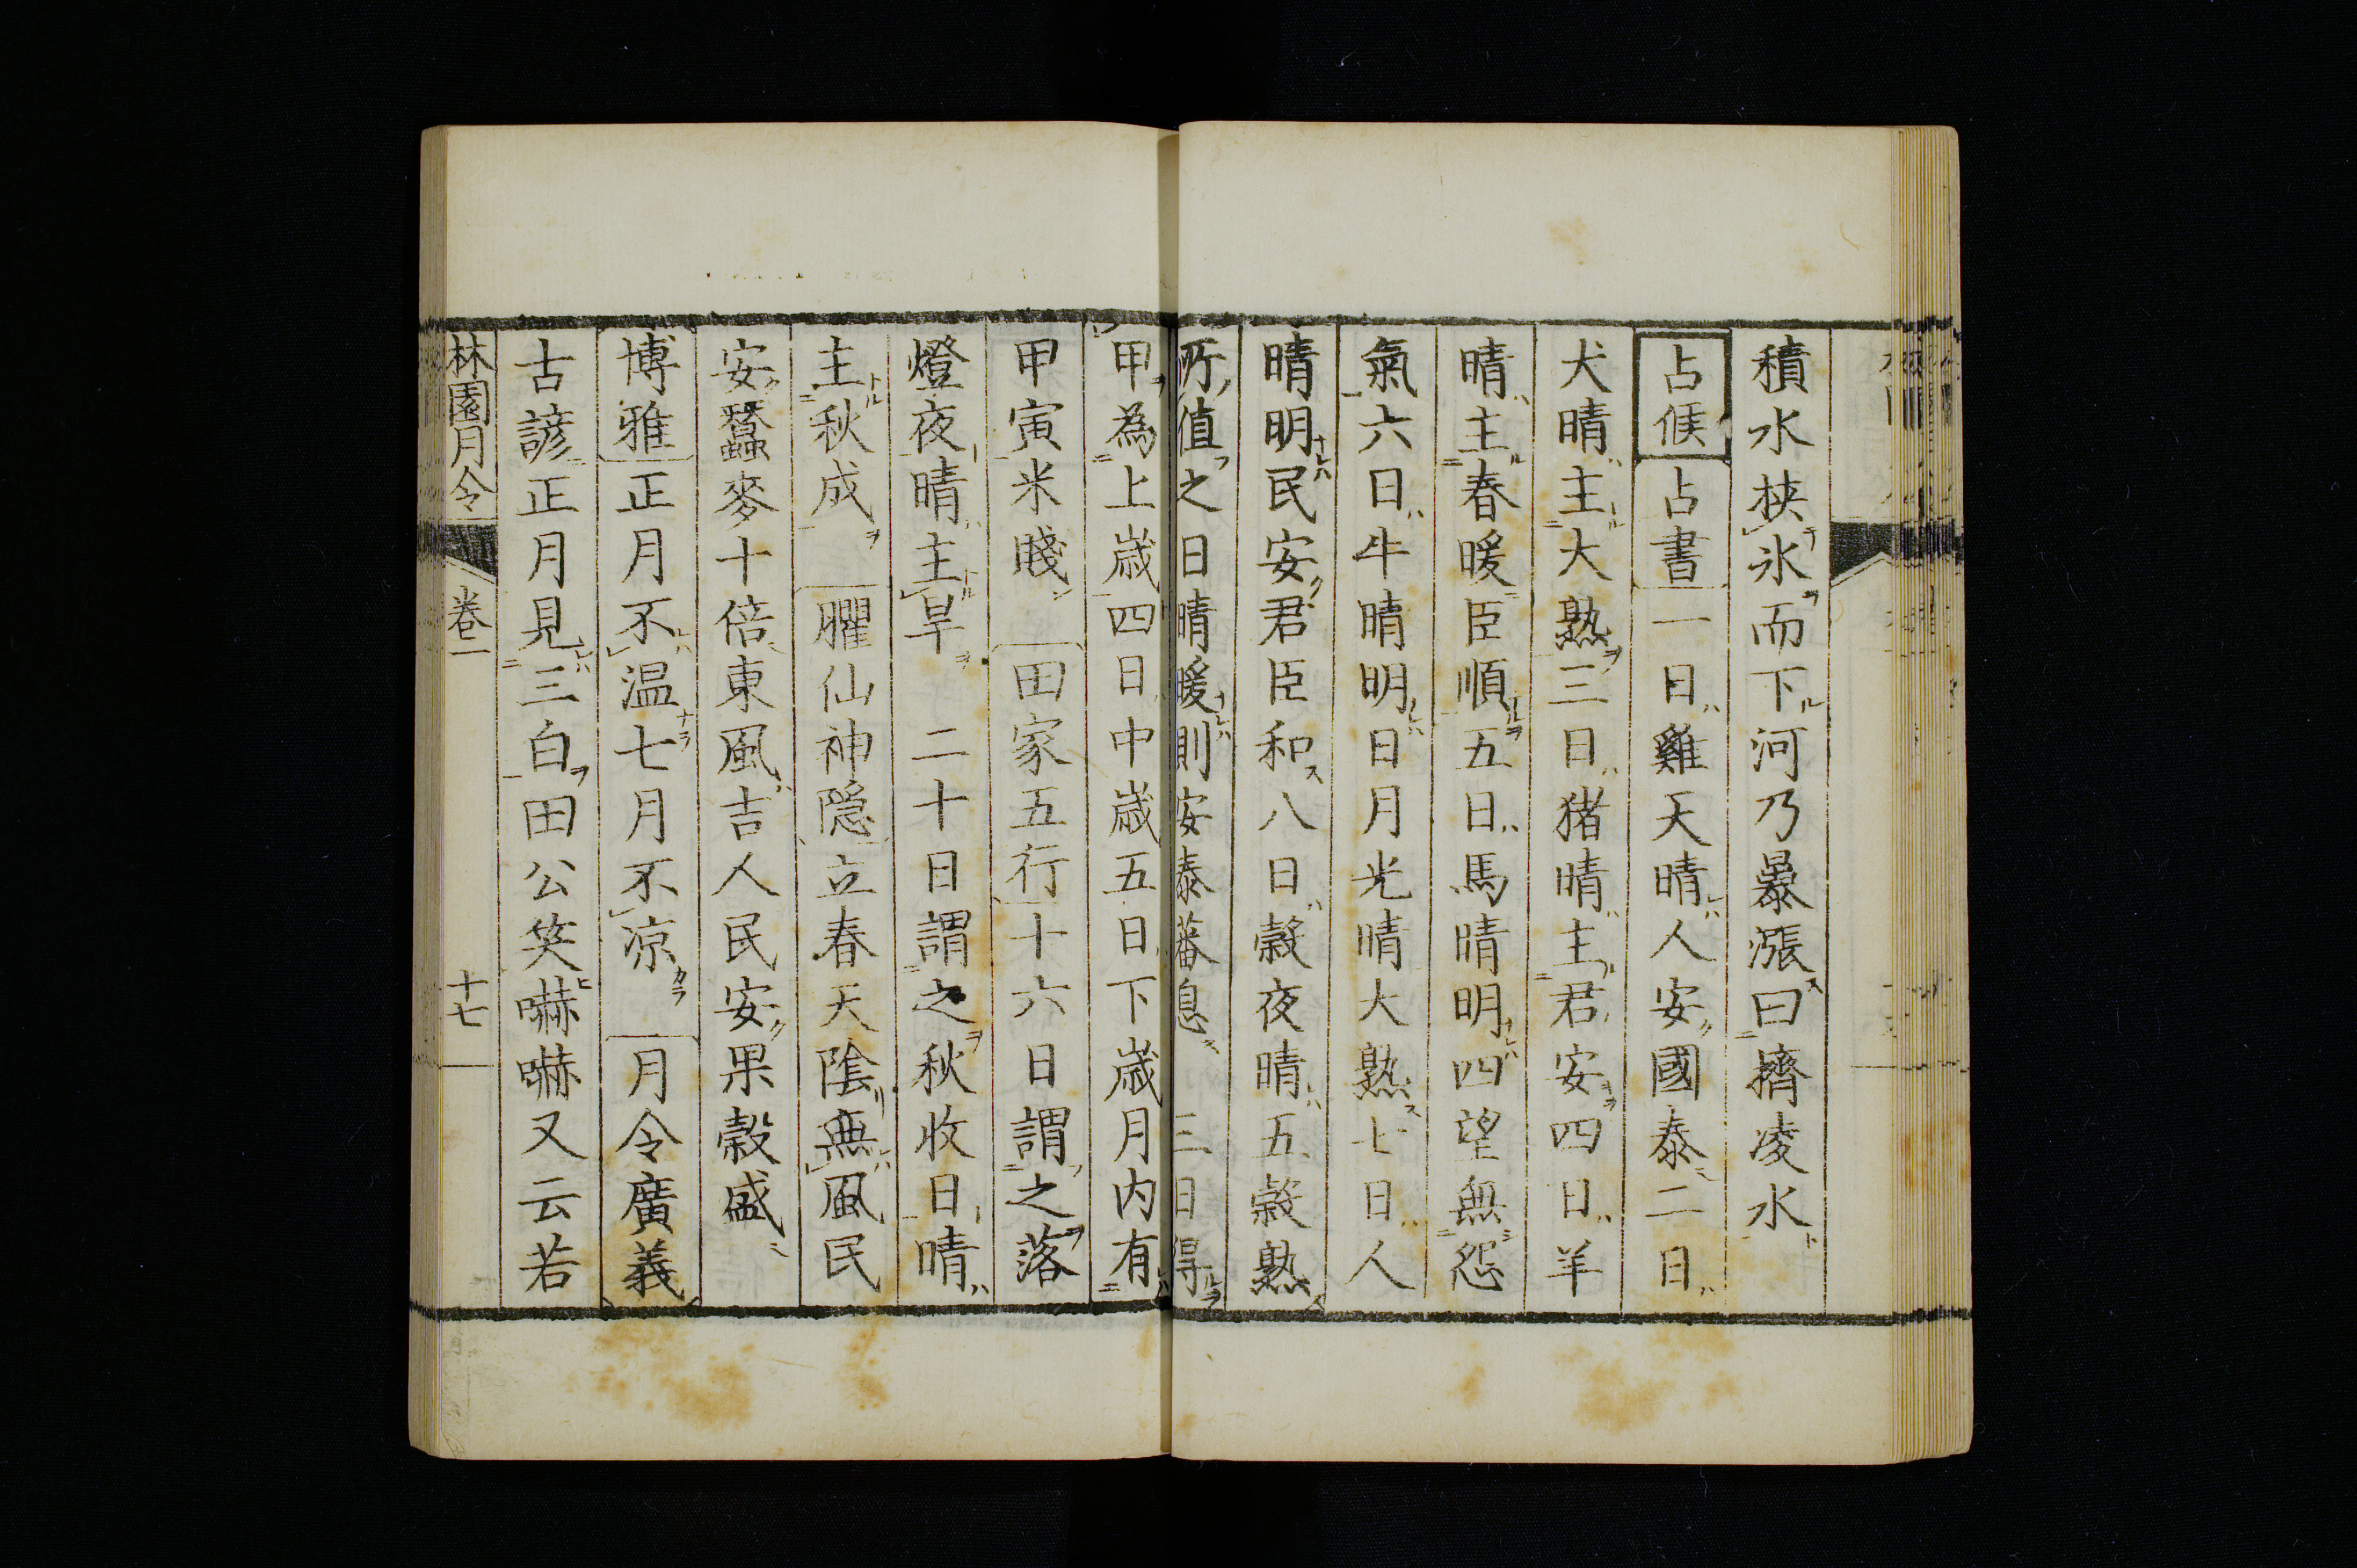 積水挾氷而下河乃㬥漲曰擠凌水
占候占書一日雞天晴人安國泰二日
犬晴主大熟三日猪晴主君安四日羊
晴主春暖臣順五日馬晴明四望無怨
氣六日牛晴明日月光晴大熟七日人
晴明民安君臣和八日糓夜晴五糓熟
所值之日晴暖則安泰蕃息 三日得
甲為上歳四日中歳五日下歳月内有
甲寅米賤 田家五行十六日謂之落
燈夜晴主旱 二十日謂之秋收日晴
主秋成 臞仙神隠立春天陰無風民
安蠶麥十倍東風吉人民安果穀盛
博雅正月不温七月不凉 月令廣義
古諺正月見三白田公笑嚇嚇又云若
林園月令 卷一 十七